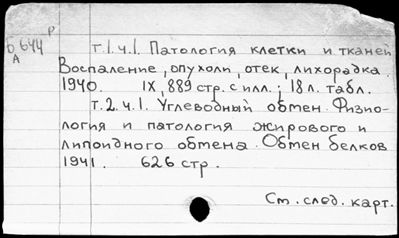 Р
Б 644
А
т.1.ч.1. Патология клетки и тканей
Воспаление, опухоли, отек, лихорадка.
1940. IX, 889 стр. с илл.; 18 л. табл.
т.2.ч.1. Углеводный обмен. Физио-
логия и патология жирового и
липоидного обмена. Обмен белков
1941. 626 стр.
См. след. карт.